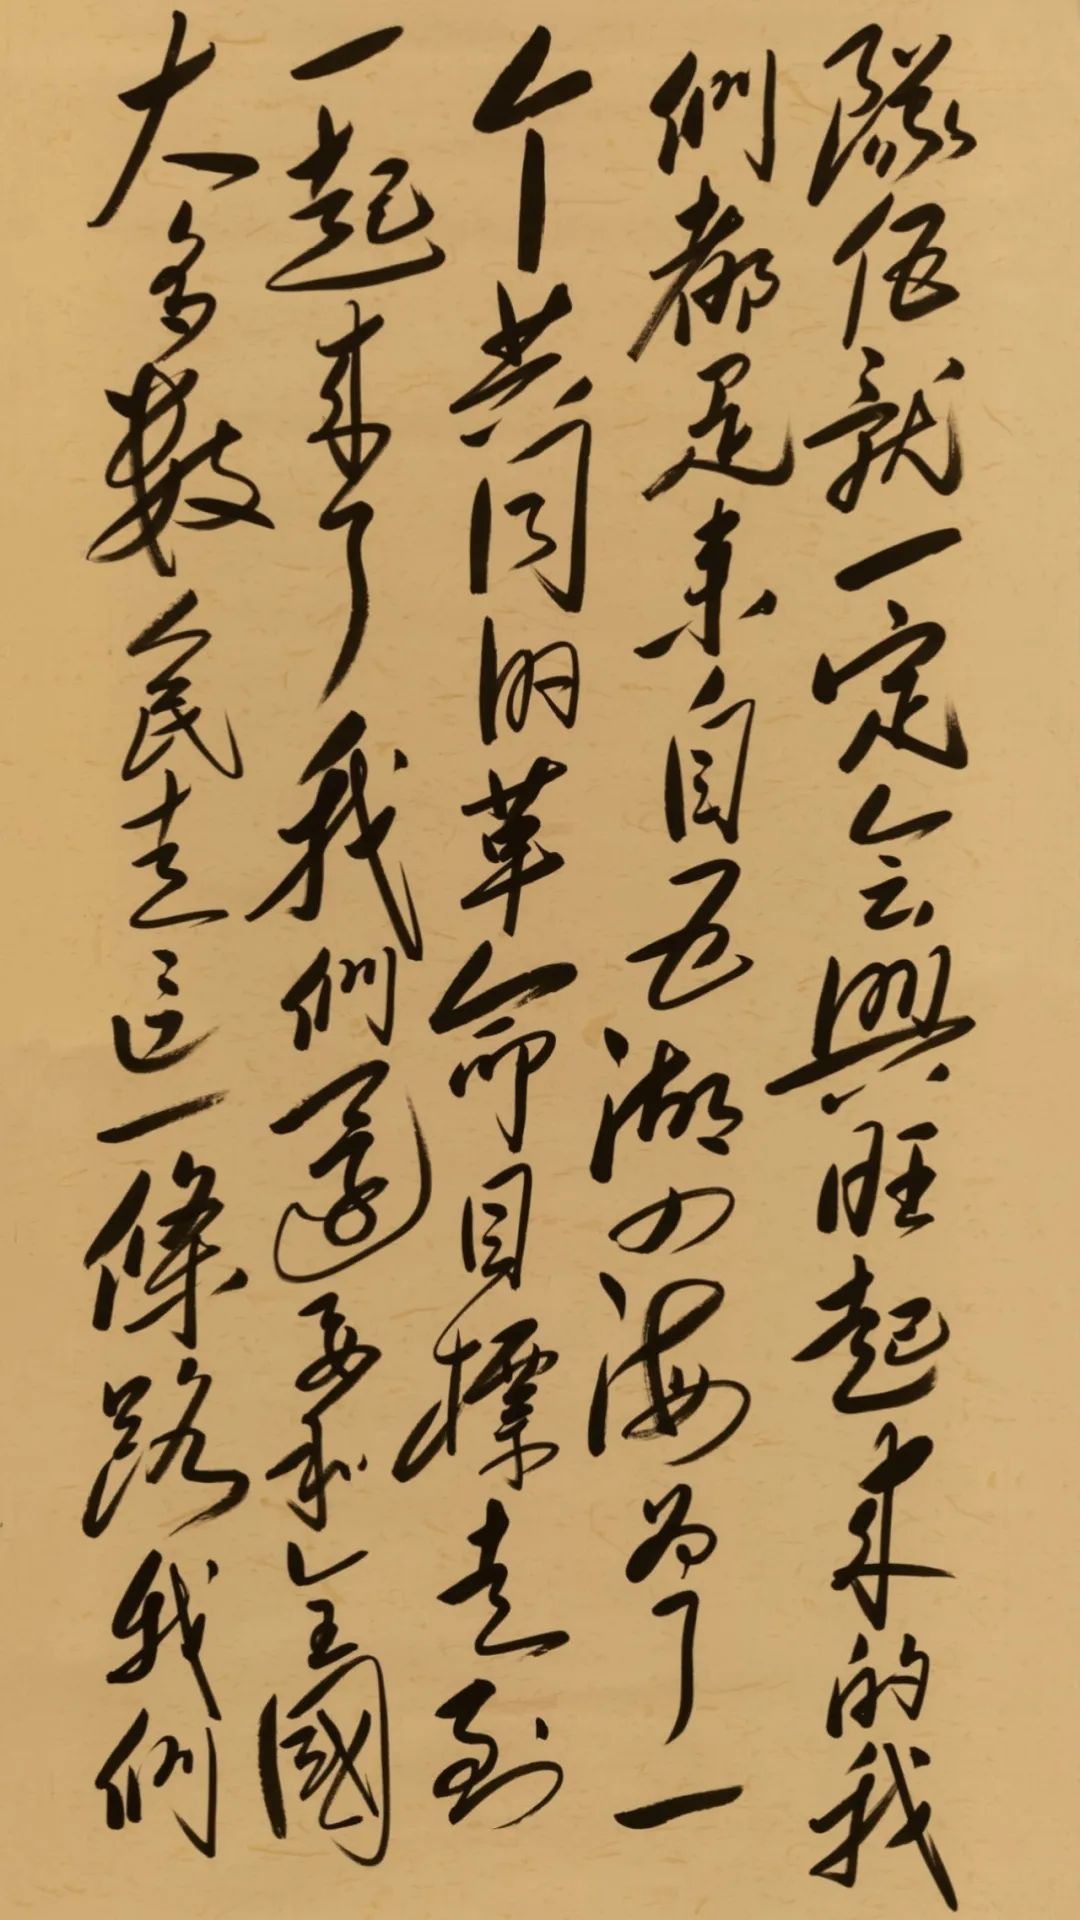 隊伍就一定会興旺起来的我
們都是来自五湖四海為了一
个共同的革命目標走到
一起来了我們還要和全國
大多數人民走這一條路我們